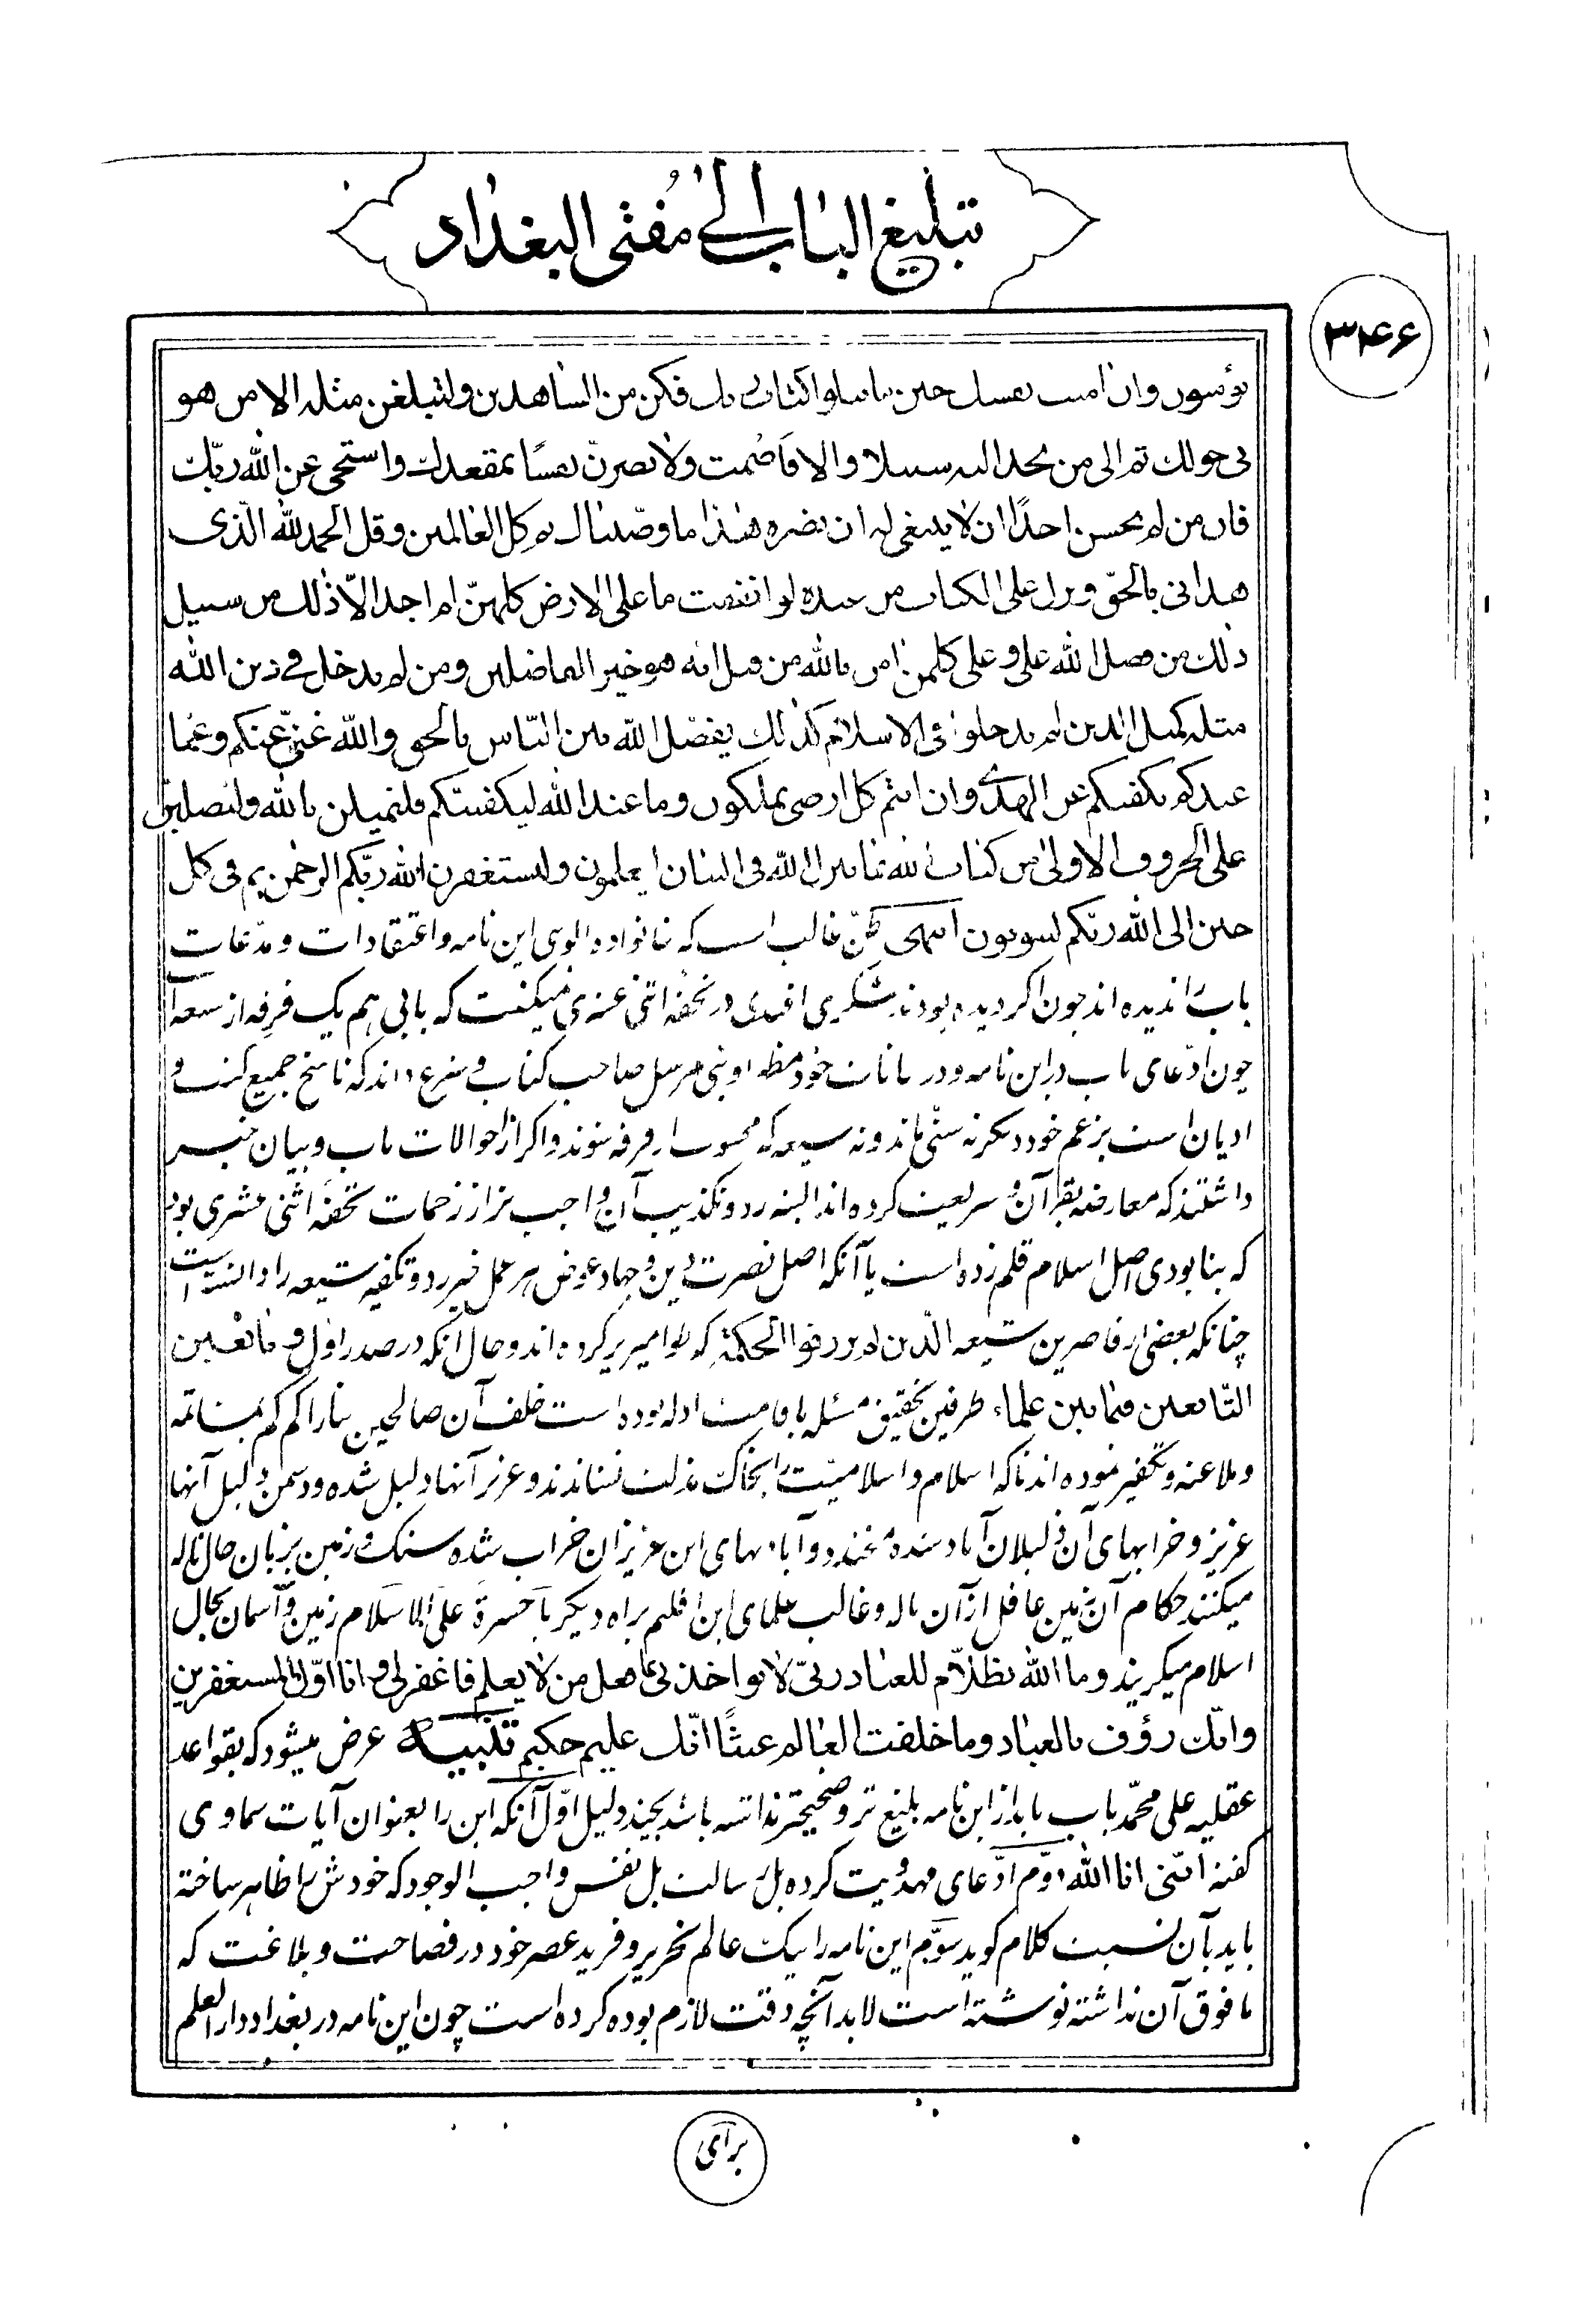 تبلیغ الباب الی مفتی البغداد
۳۴۶
وان امنت حین فکن من الشاهدین ولتبلغن مثله الامر هو
حولك ثم الی من الیه سبیلا والا فاصمت ولا نفسا بمقعدك واستحی عن الله ربك
من لم یحسن احدا ان لا ینبغی له ان یضره هذا ما وصیناك به کل العالمین وقل الحمد لله الذی
هدانی بالحق علی الکتاب من عنده لو انفقت ما علی الارض کلهن لم اجد الا ذلك من سبیل
ذلك من فضل الله علی وعلی کلمن امن بالله من قبل انه هو خیر الفاضلین ومن لم یدخل فی دین الله
مثله کمثل الذین لم یدخلوا فی الاسلام کذلك یفصل الله بین الناس بالحق والله غنی عنکم وعما
عندکم عن الهدی وان انتم کل ارضی تملکون وما عند الله لیکفینکم بالله ولتصلین
علی الحروف الاولی من کتاب الله الله فی البیان یعلمون ولتستغفرن الله ربکم الرحمن ثم فی کل
حین الی الله ربکم انتهی ظن غالب است که خانواده الوسی این نامه واعتقادات ومدعات
باب را ندیده اند چون اگر دیده بودند شکری افندی در تحفه اثنی عشری میگفت که بابی هم یک فرقه از شیعه
چون ادعای باب در این نامه ودر بیانات خود مظهر او نبی مرسل صاحب کتاب و شرع داند که ناسخ جمیع کتب و
ادیان است بزعم خود دیگر نه سنی ماند ونه شیعه که محسوب از فرقه شوند واگر از احوالات باب وبیان خبر
داشتند که معارضه بقرآن و شریعت کرده اند البته رد وتکذیب آن واجب تر از زحمات تحفه اثنی عشری بود
که بنابودی اصل اسلام قلم زده است یا آنکه اصل نصرت دین وجهاد عوض هر عمل خیر رد وتکفیر شیعه را دانسته است
چنانکه بعضی از قاصرین شیعه الذین لم یرزقوا الحکمة که طوامیر پر کرده اند وحال انکه در صدر اول و تابعین
التابعین فیما بین علماء طرفین تحقیق مسئله باقامت ادله بوده است خلف آن صالحین بنا را کم کم بمشاتمه
وملاعنه وتکفیر نموده اند تا که اسلام واسلامیت را بخاک مذلت نشاندند وعزیز آنها ذلیل شده ودشمن ذلیل آنها
عزیز وخرابهای آن ذلیلان آباد شده وآبادیهای این عزیزان خراب شده سنگ وزمین بزبان حال ناله
میکنند حکام آن زمین غافل از آن ناله وغالب علمای این اقلیم براه دیگر یا حسرة علی الاسلام زمین وآسمان بحال
اسلام میگریند وما الله بظلام للعباد ربی لا تواخذنی بما جهل من لا یعلم فاغفر لی وانا اول المستغفرین
وانك رؤف بالعباد وما خلقت العالم عبثا انك علیم حکیم تنبیه عرض میشود که بقواعد
عقلیه علی محمد باب باید از این نامه بلیغ تر وصحیحتر نداشته باشد بچند دلیل اول آنکه این را بعنوان آیات سماوی
گفته اننی انا الله دوم ادعای مهدویت کرده بل رسالت بل نفس واجب الوجود که خودش را ظاهر ساخته
باید بآن نسبت کلام گوید سوم این نامه را بیک عالم نحریر وفرید عصر خود در فصاحت وبلاغت که
مافوق آن نداشته نوشته است لابد آنچه دقت لازم بوده کرده است چون این نامه در بغداد دار العلم
برای